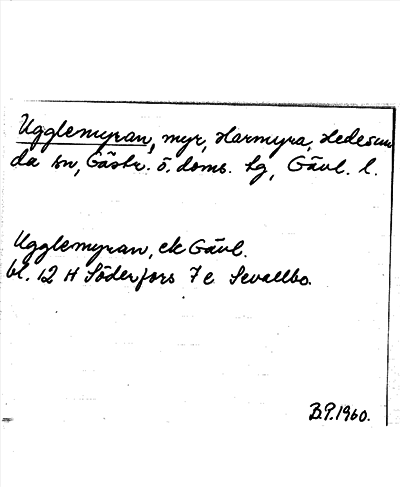 Ugglemyran, myr, Harmyra, Hedesun
da sn, Gästr. ö. doms. tg, Gävl. l.
Ugglemyran, ek Gävl.
bl. 12 H Söderfors 7 e Sevallbo.
B.P. 1960.